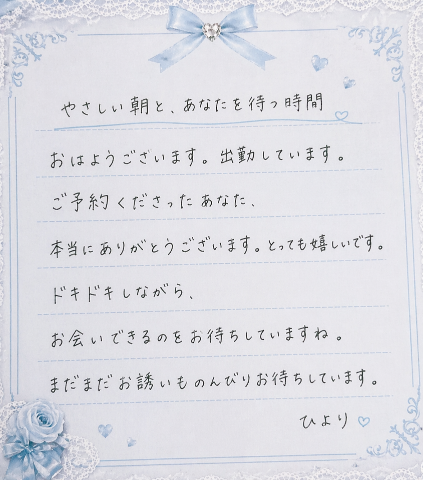 やさしい朝と、あなたを待つ時間
おはようございます。出勤しています。
ご予約くださったあなた、
本当にありがとうございます。とっても嬉しいです。
ドキドキしながら、
お会いできるのをお待ちしていますね。
まだまだお誘いものんびりお待ちしています。
ひより♡